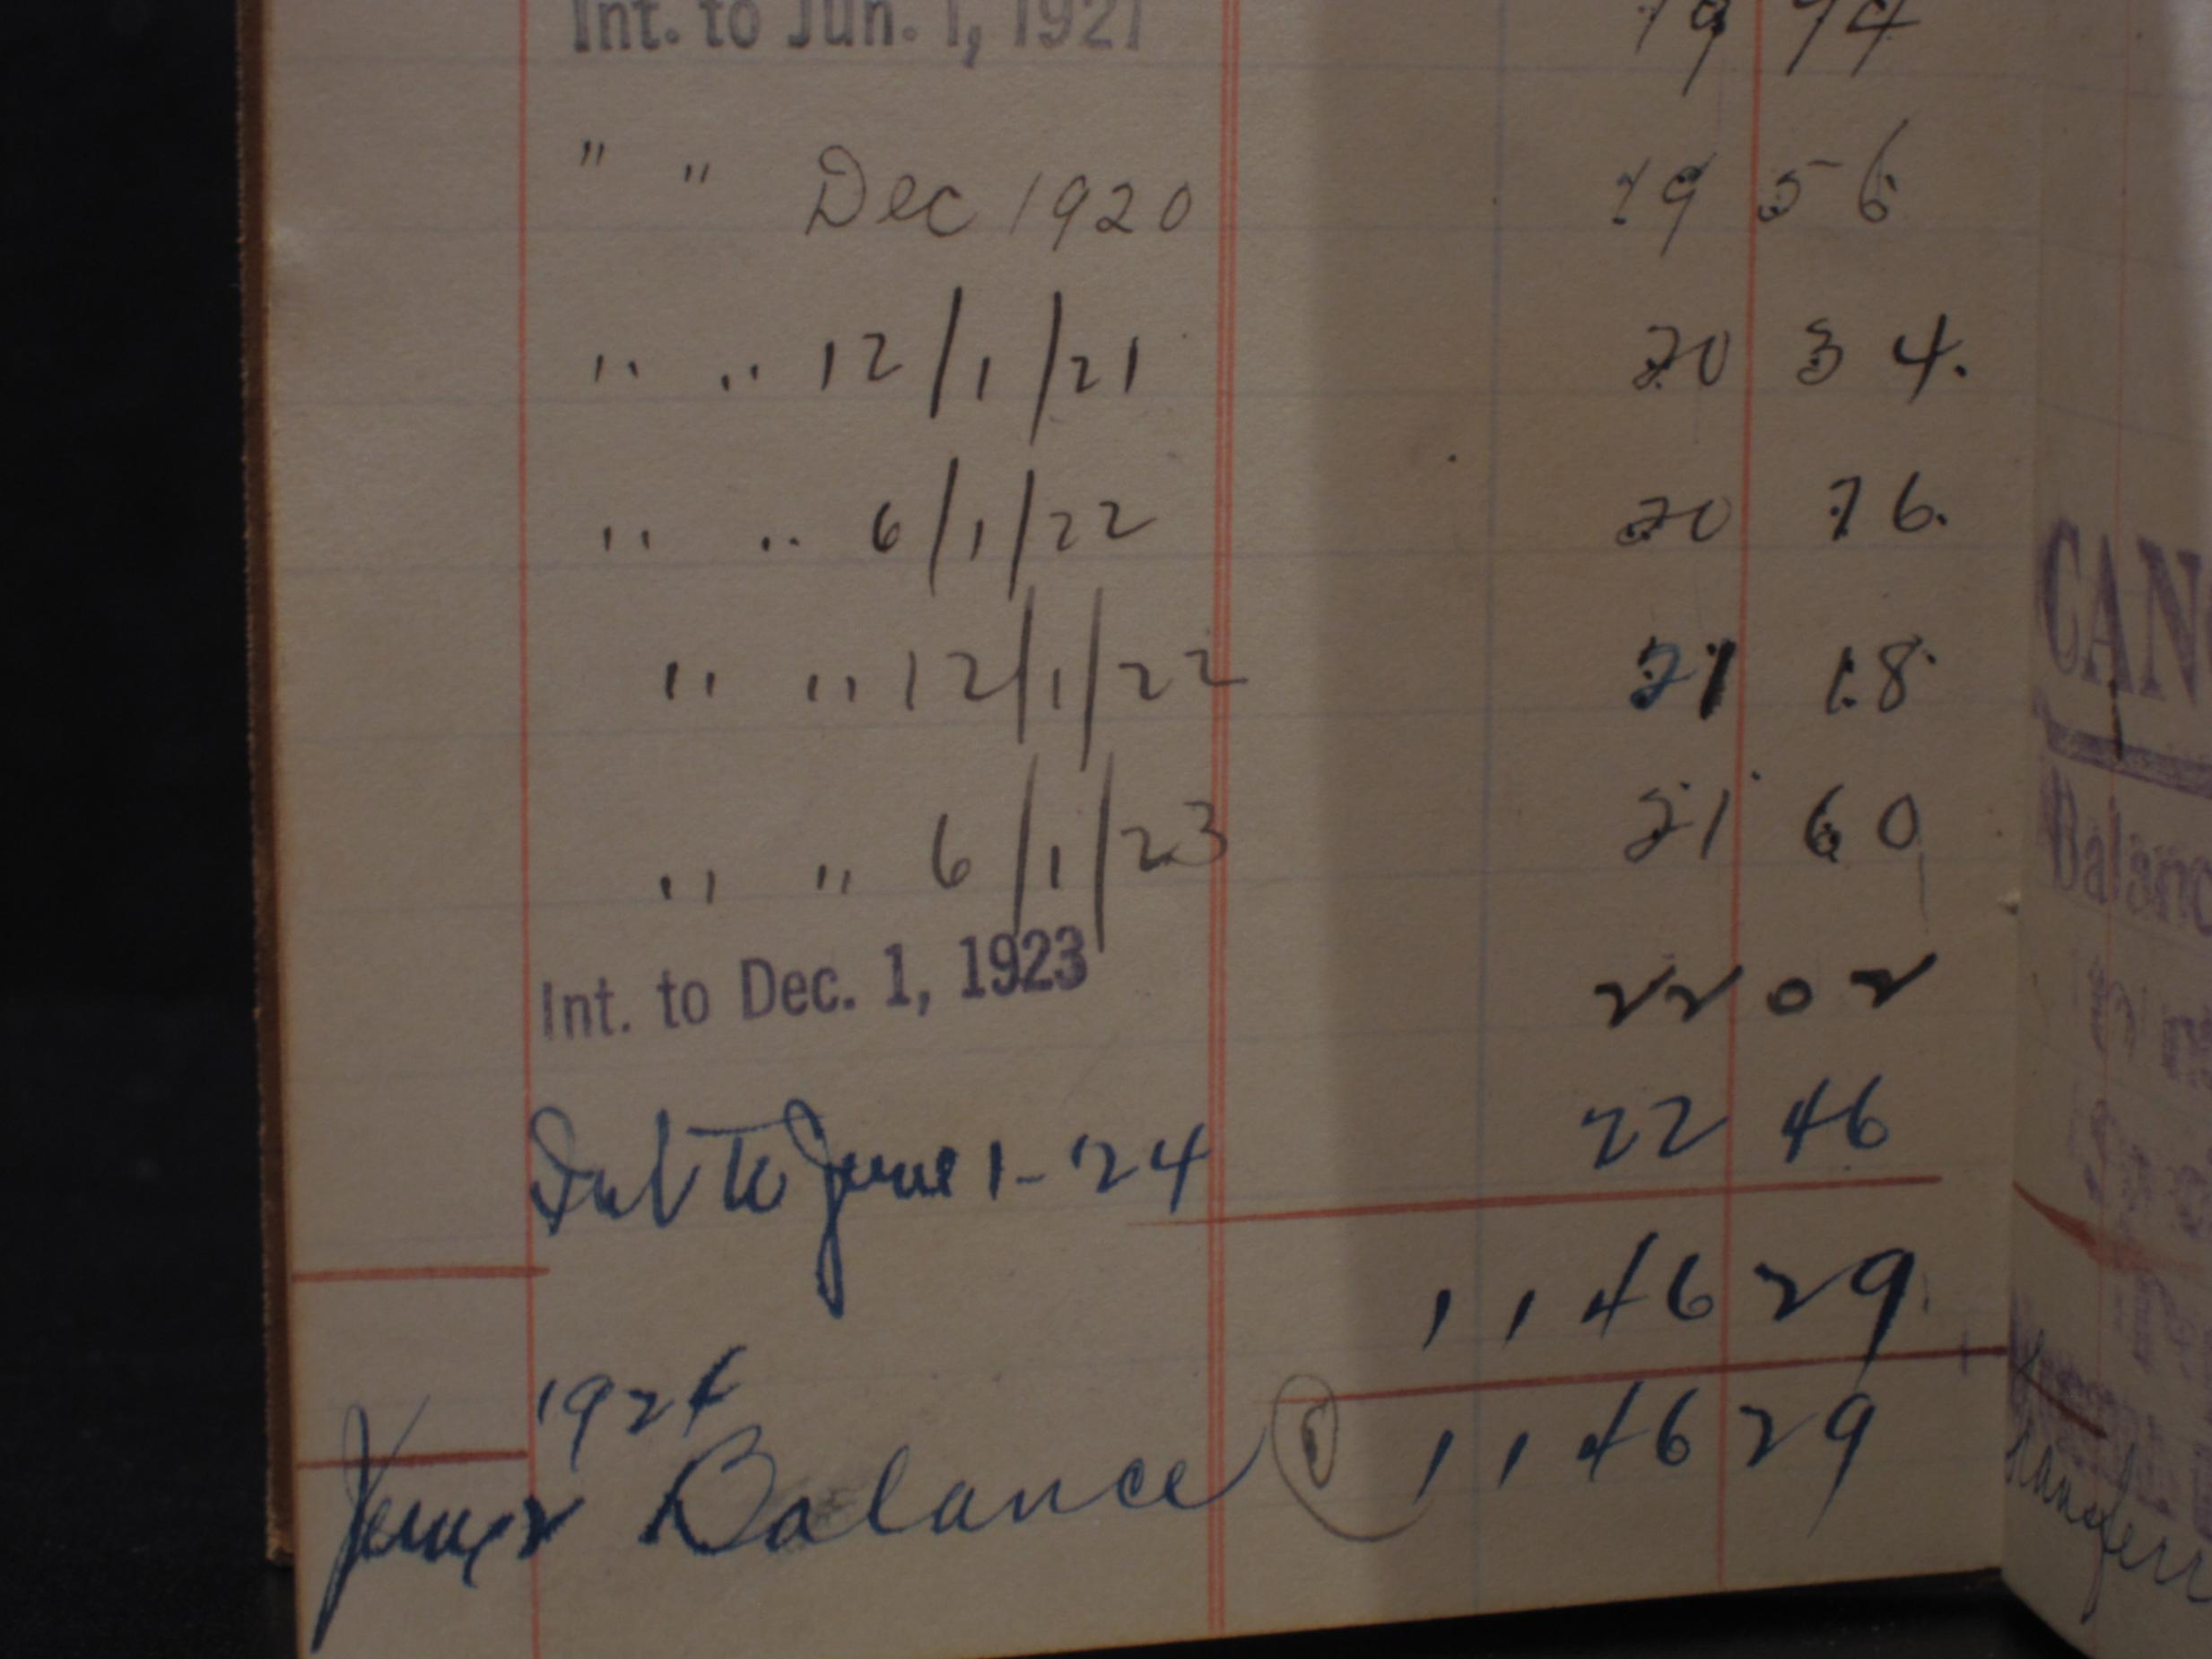 Int. to Jun. 1, 1921 19 94
" " Dec 1920 19 56
" " 12/1/21 20 34.
" " 6/1/22 20 76.
" " 12/1/22 21 18
" " 6/1/23 21 60
Int. to Dec. 1, 1923 22 02
Int to June 1-'24 22 46
1146 29
1924
June 2 Balance 1146 29
CAN
Balanc